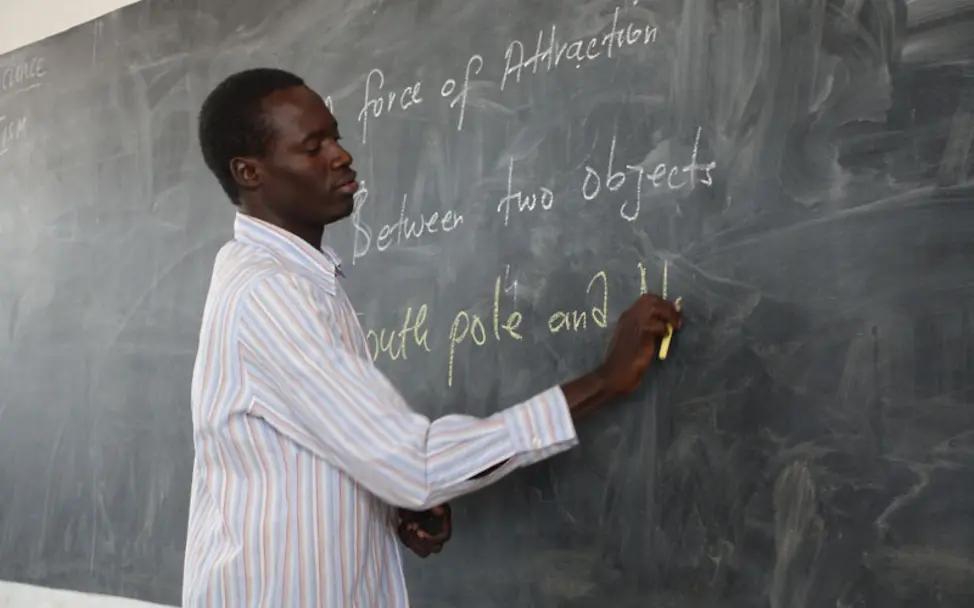 force of Attraction
Between two objects
outh pole and N